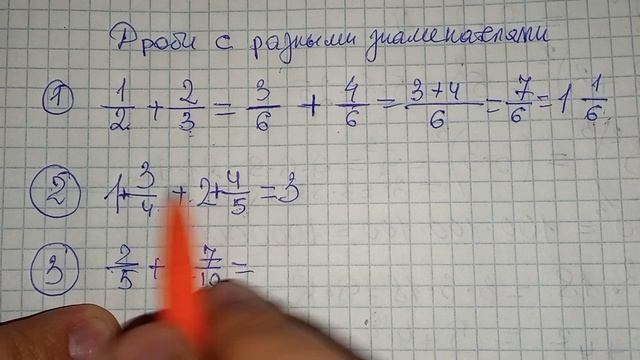 Дроби с разными знаменателями
① 1/2 + 2/3 = 3/6 + 4/6 = 3+4/6 = 7/6 = 1 1/6
② 1+3/4 + 2+4/5 = 3
③ 2/5 + 7/10 =